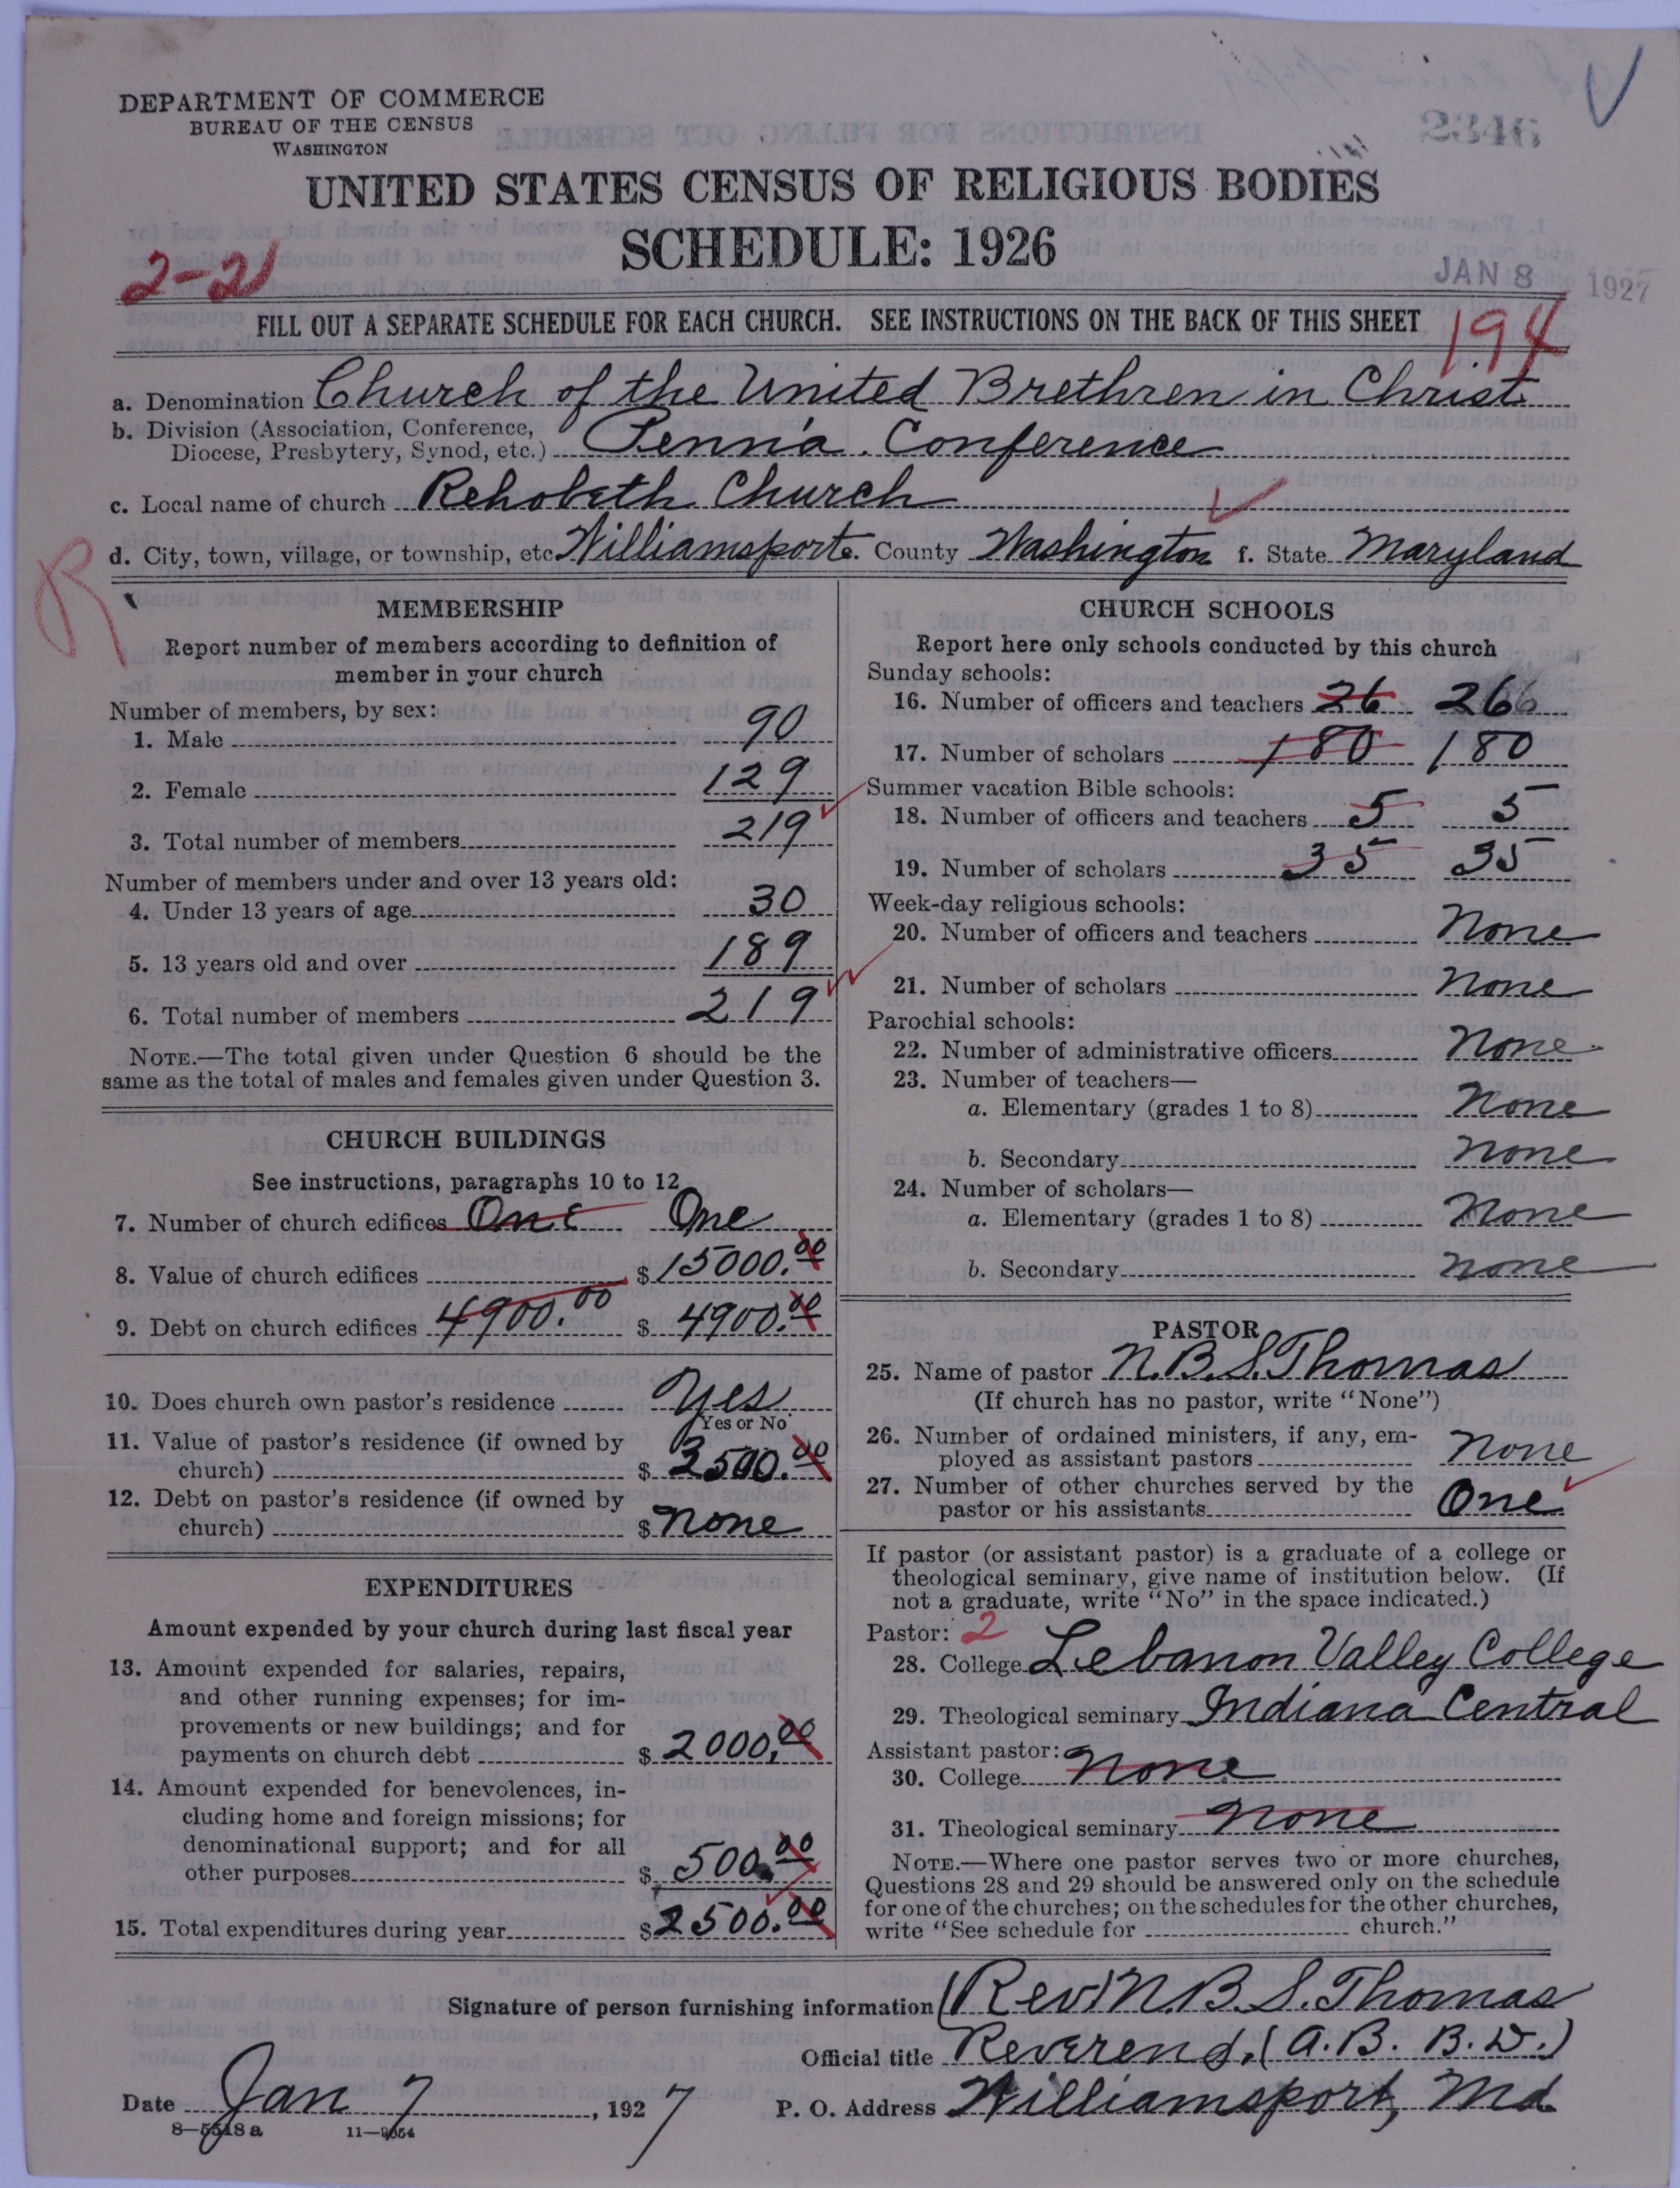 DEPARTMENT OF COMMERCE
BUREAU OF THE CENSUS
WASHINGTON
2346
UNITED STATES CENSUS OF RELIGIOUS BODIES
SCHEDULE: 1926
2-21
JAN 8 1927
FILL OUT A SEPARATE SCHEDULE FOR EACH CHURCH. SEE INSTRUCTIONS ON THE BACK OF THIS SHEET
194
a. Denomination Church of the United Brethren in Christ
b. Division (Association, Conference,
Diocese, Presbytery, Synod, etc.) Penn'a. Conference
c. Local name of church Rehobeth Church
d. City, town, village, or township, etc. Williamsport e. County Washington f. State Maryland
R
MEMBERSHIP
Report number of members according to definition of
member in your church
Number of members, by sex:
1. Male 90
2. Female 129
3. Total number of members 219
Number of members under and over 13 years old:
4. Under 13 years of age 30
5. 13 years old and over 189
6. Total number of members 219
NOTE.—The total given under Question 6 should be the
same as the total of males and females given under Question 3.
CHURCH BUILDINGS
See instructions, paragraphs 10 to 12
7. Number of church edifices One One
8. Value of church edifices $ 15000.00
9. Debt on church edifices 4900.00 $ 4900.00
10. Does church own pastor's residence Yes
Yes or No
11. Value of pastor's residence (if owned by
church) $ 3500.00
12. Debt on pastor's residence (if owned by
church) $ None
EXPENDITURES
Amount expended by your church during last fiscal year
13. Amount expended for salaries, repairs,
and other running expenses; for im-
provements or new buildings; and for
payments on church debt $ 2000.00
14. Amount expended for benevolences, in-
cluding home and foreign missions; for
denominational support; and for all
other purposes $ 500.00
15. Total expenditures during year $ 2500.00
CHURCH SCHOOLS
Report here only schools conducted by this church
Sunday schools:
16. Number of officers and teachers 26 26
17. Number of scholars 180 180
Summer vacation Bible schools:
18. Number of officers and teachers 5 5
19. Number of scholars 35 35
Week-day religious schools:
20. Number of officers and teachers None
21. Number of scholars None
Parochial schools:
22. Number of administrative officers None
23. Number of teachers—
a. Elementary (grades 1 to 8) None
b. Secondary None
24. Number of scholars—
a. Elementary (grades 1 to 8) None
b. Secondary None
PASTOR
25. Name of pastor N.B.S. Thomas
(If church has no pastor, write "None")
26. Number of ordained ministers, if any, em-
ployed as assistant pastors None
27. Number of other churches served by the
pastor or his assistants One
If pastor (or assistant pastor) is a graduate of a college or
theological seminary, give name of institution below. (If
not a graduate, write "No" in the space indicated.)
Pastor: 2
28. College Lebanon Valley College
29. Theological seminary Indiana Central
Assistant pastor:
30. College None
31. Theological seminary None
NOTE.—Where one pastor serves two or more churches,
Questions 28 and 29 should be answered only on the schedule
for one of the churches; on the schedules for the other churches,
write "See schedule for church."
Signature of person furnishing information (Rev) N.B.S. Thomas
Official title Reverend, (A.B. B.D.)
Date Jan 7, 1927 P. O. Address Williamsport, Md.
8—5518a 11—9654